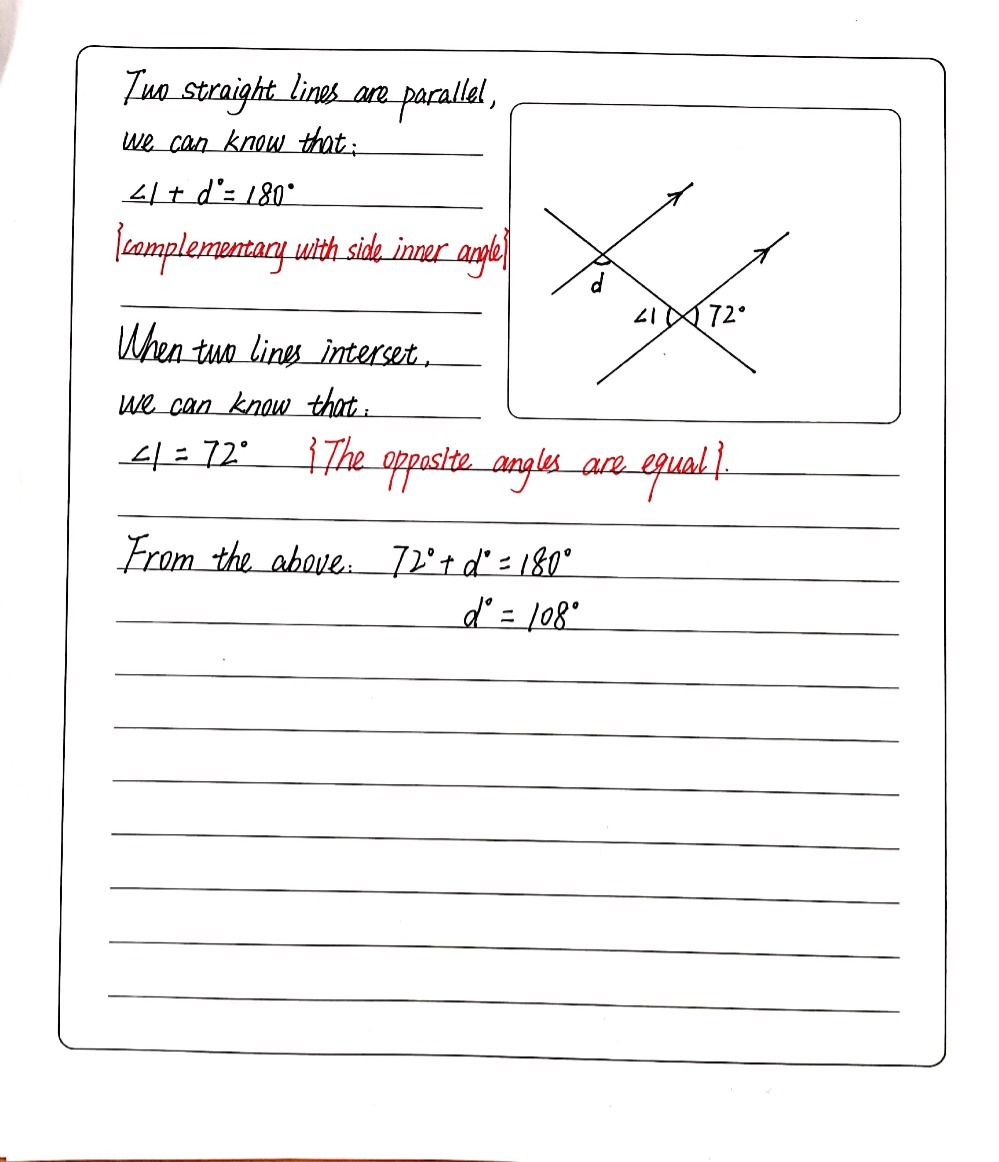 Two straight lines are parallel,
we can know that:
∠1 + d° = 180°
{complementary with side inner angle}
When two lines interset,
we can know that:
∠1 = 72° {The opposite angles are equal}.
From the above: 72° + d° = 180°
d° = 108°
d
∠1
72°